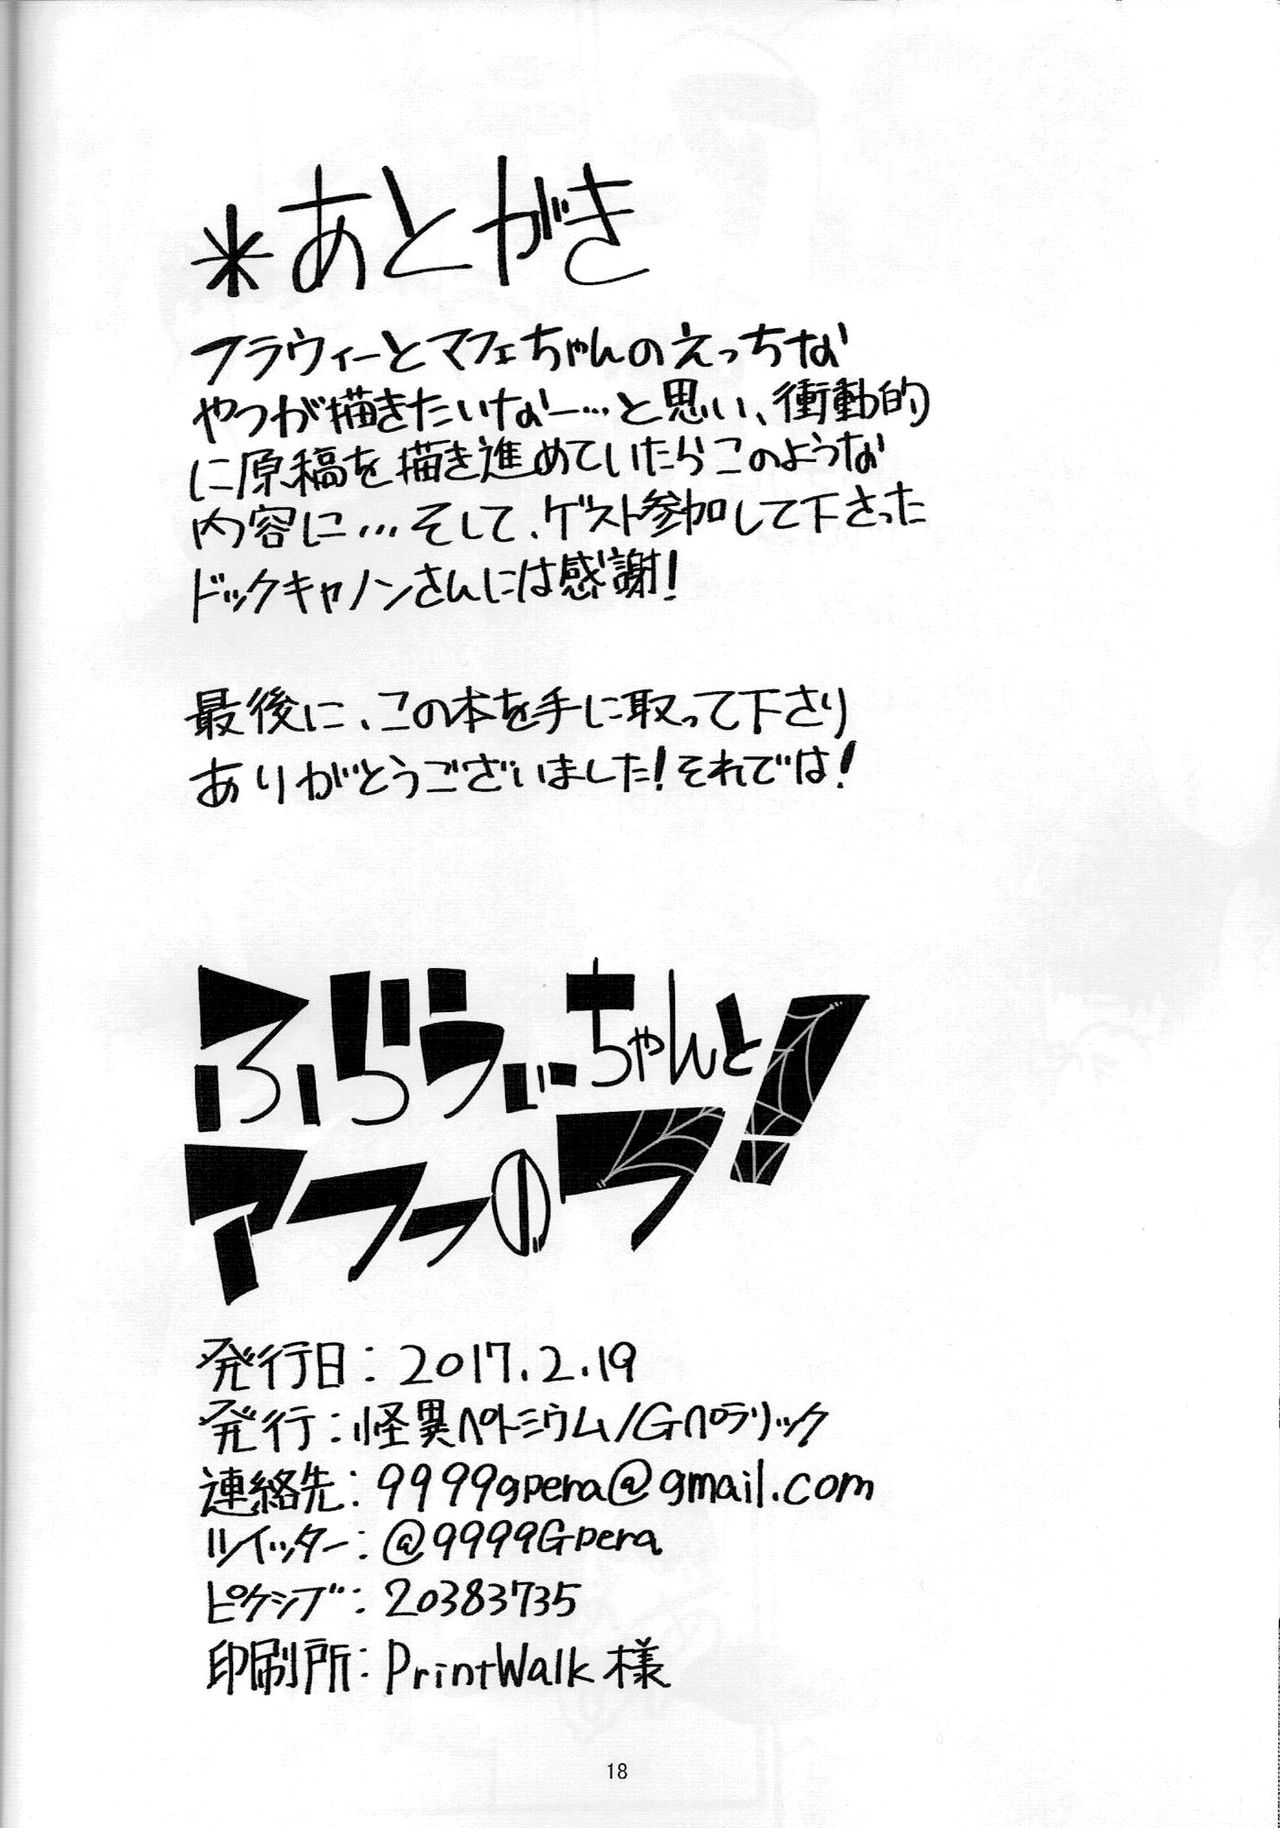 *あとがき
フラウィーとマフェちゃんのえっちな
やつが描きたいなー…と思い、衝動的
に原稿を描き進めていたらこのような
内容に…そして、ゲスト参加して下さった
ドックキャノンさんには感謝!
最後に、この本を手に取って下さり
ありがとうございました!それでは!
ふらうぃーちゃんと
アフ
発行日:2017.2.19
発行:怪異ペトミウム/Gペラリック
連絡先:9999gpera@gmail.com
ツイッター:@9999Gpera
ピクシブ:20383735
印刷所:PrintWalk様
18